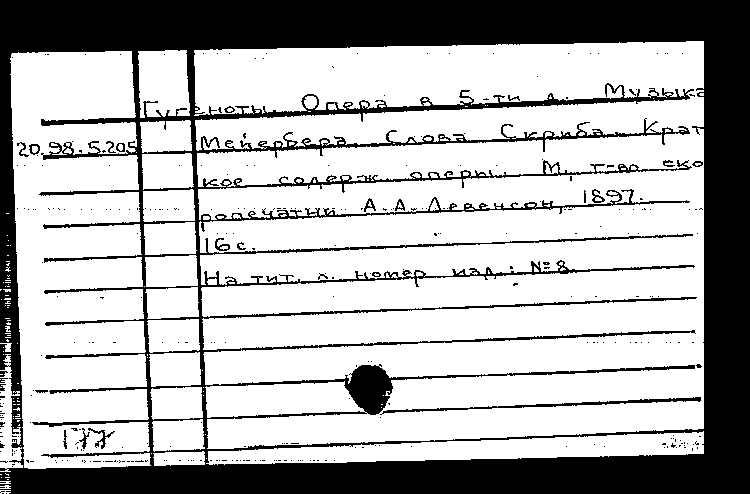 Гугеноты. Опера в 5-ти д. Музыка
20.98.5.205 Мейербера. Слова Скриба. Крат
кое содерж. оперы. М., т-во ско
ропечатни А.А. Левенсон, 1897.
16 с.
На тит. л. номер изд.: № 8.
177